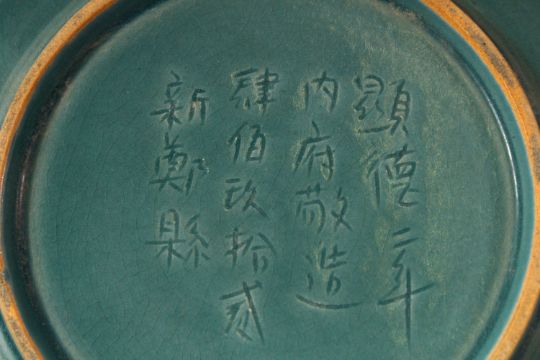 顯德二年
内府敬造
肆佰玖拾貳
新鄭縣